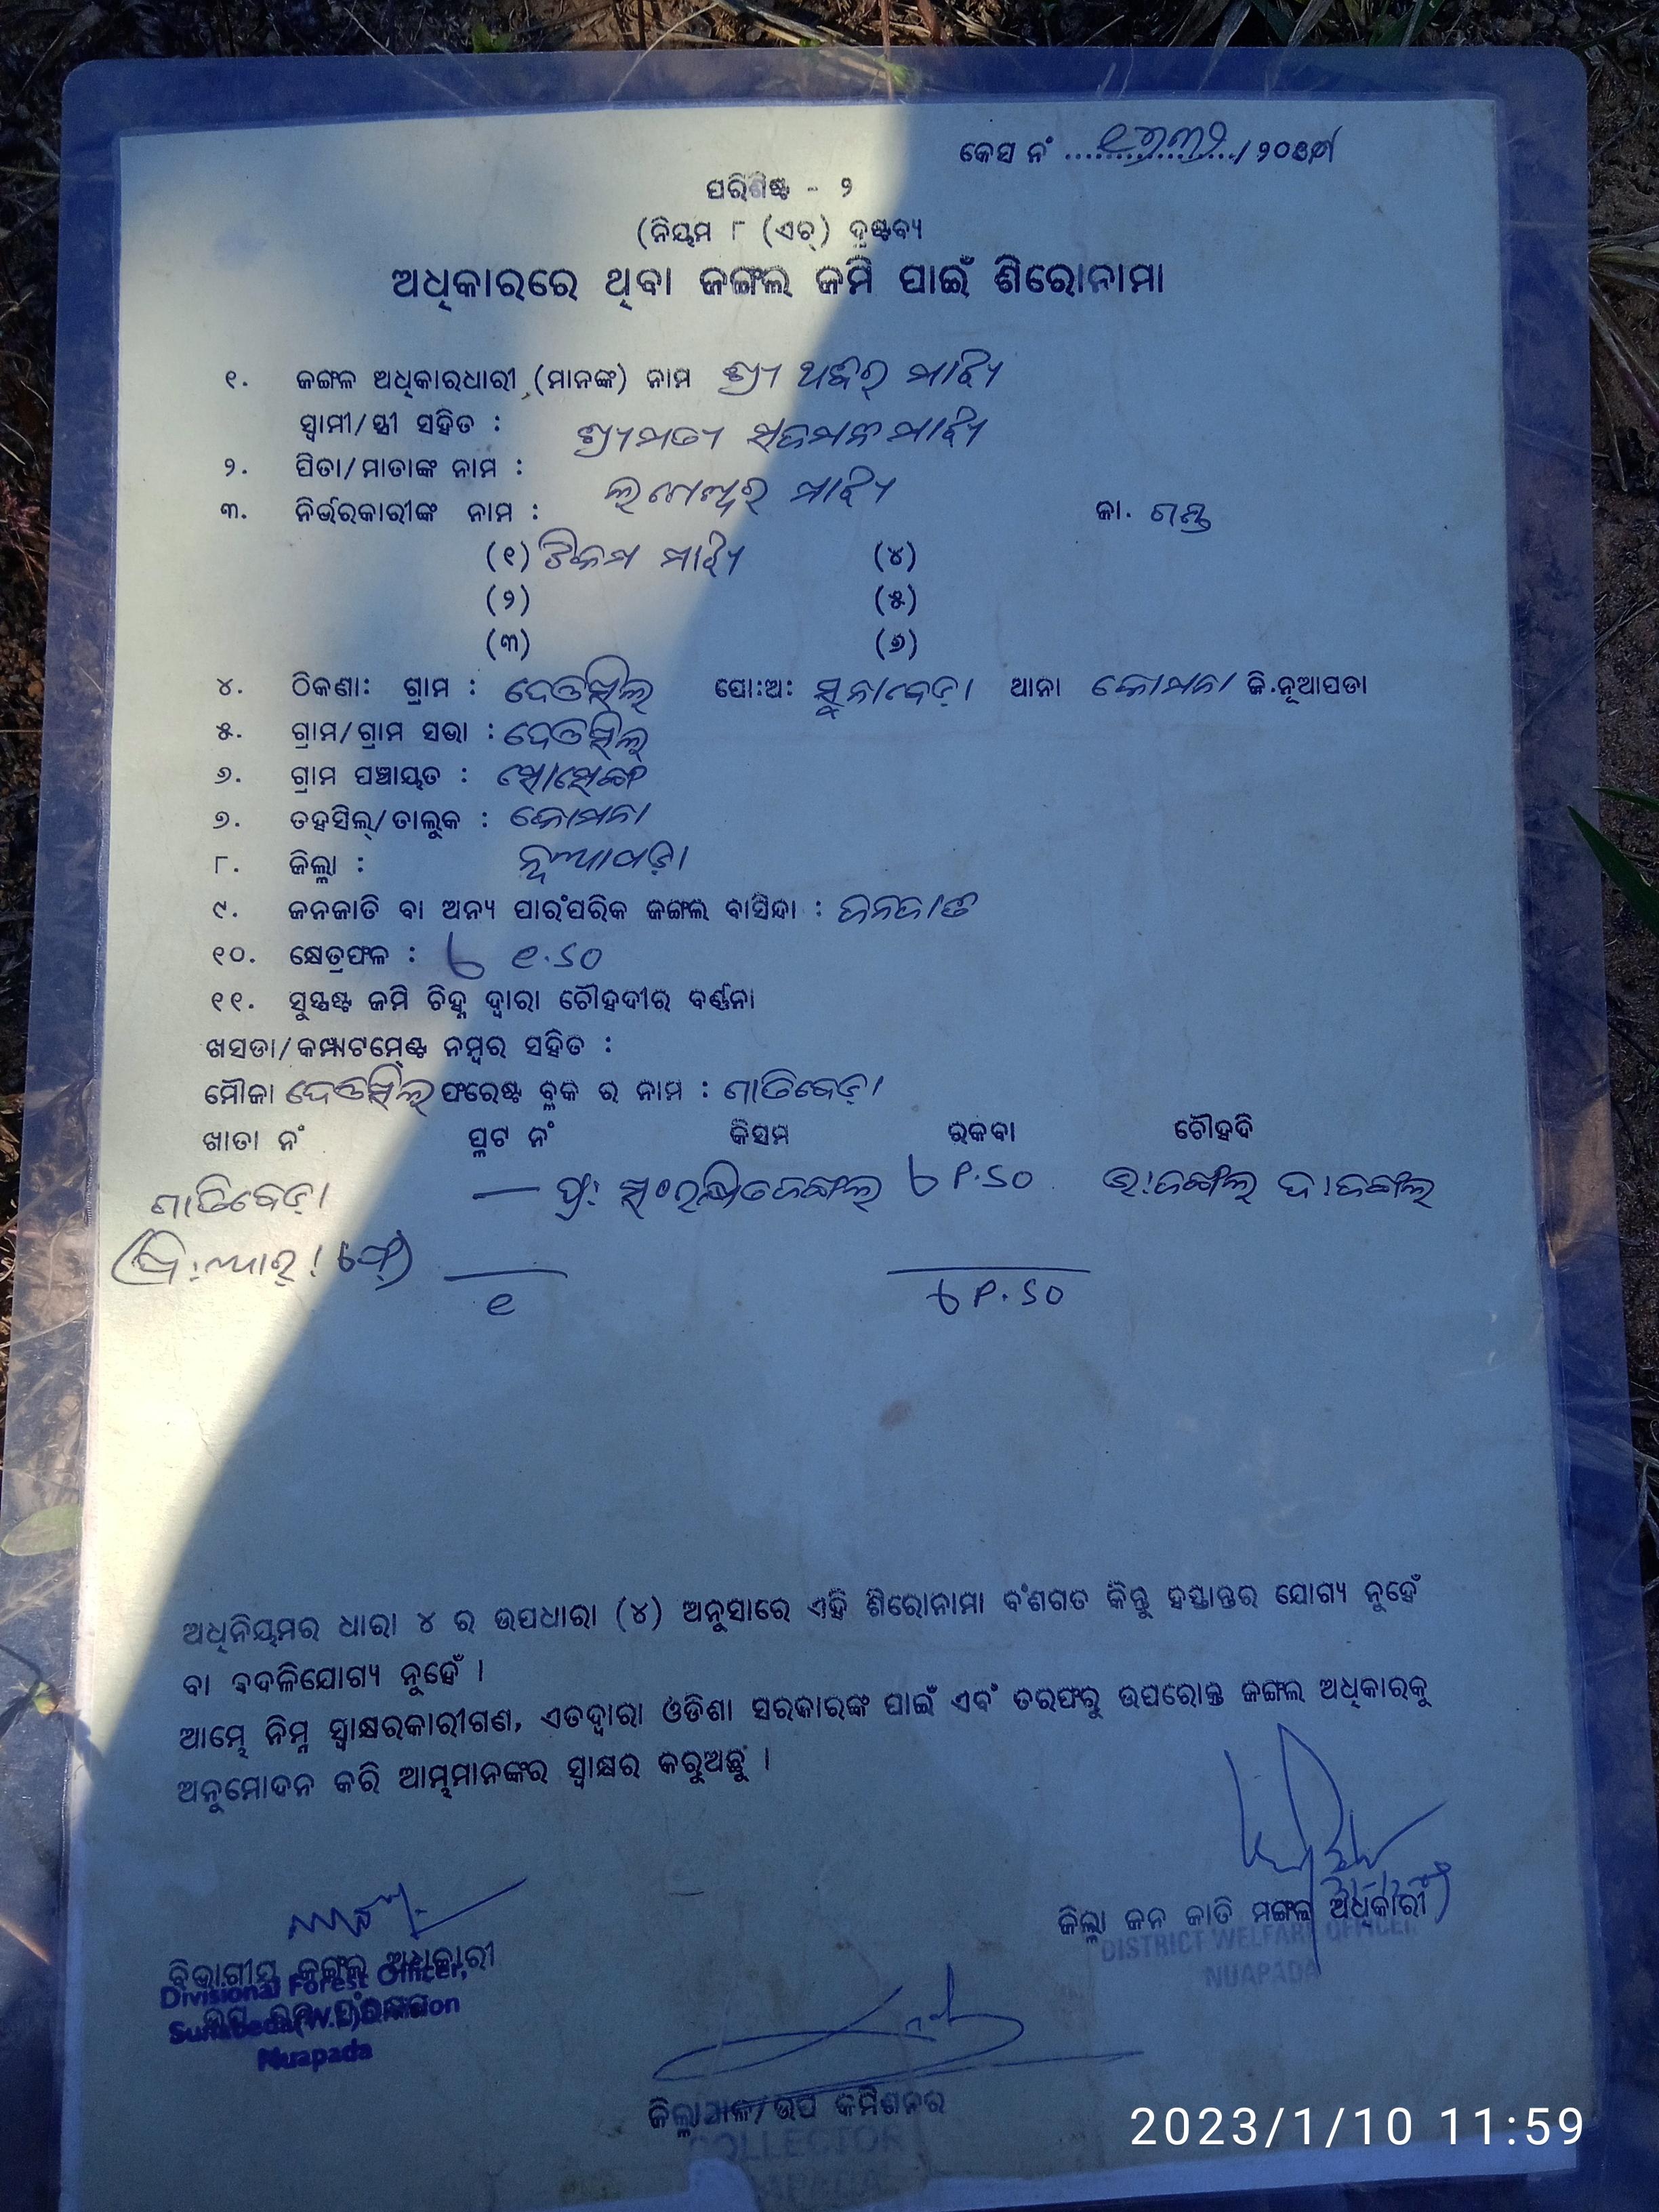 କେସ ନଂ ................/୨୦
ପରିଶିଷ୍ଟ - ୨
(ନିୟମ ୮ (ଏଚ୍) ଦ୍ରଷ୍ଟବ୍ୟ
ଅଧିକାରରେ ଥିବା ଜଙ୍ଗଲ ଜମି ପାଇଁ ଶିରୋନାମା
୧. ଜଙ୍ଗଲ ଅଧିକାରଧାରୀ (ମାନଙ୍କ) ନାମ ଶ୍ରୀ ମାଝି
ସ୍ଵାମୀ/ସ୍ତ୍ରୀ ସହିତ : ଶ୍ରୀମତୀ ମାଝି
୨. ପିତା/ମାତାଙ୍କ ନାମ : ମାଝି
୩. ନିର୍ଭରକାରୀଙ୍କ ନାମ : ଜା. ଗଣ୍ଡ
(୧) ଟିକମ ମାଝି (୪)
(୨) (୫)
(୩) (୬)
୪. ଠିକଣା: ଗ୍ରାମ : ପୋ:ଅ: ସୁନାବେଡ଼ା ଥାନା କୋମନା ଜି.ନୂଆପଡା
୫. ଗ୍ରାମ/ଗ୍ରାମ ସଭା :
୬. ଗ୍ରାମ ପଞ୍ଚାୟତ :
୭. ତହସିଲ୍/ତାଲୁକ : କୋମନା
୮. ଜିଲ୍ଲା : ନୂଆପଡ଼ା
୯. ଜନଜାତି ବା ଅନ୍ୟ ପାରଂପରିକ ଜଙ୍ଗଲ ବାସିନ୍ଦା : ଜନଜାତି
୧୦. କ୍ଷେତ୍ରଫଳ : ୧.୪୦
୧୧. ସୁସ୍ପଷ୍ଟ ଜମି ଚିହ୍ନ ଦ୍ଵାରା ଚୌହଦୀର ବର୍ଣ୍ଣନା
ଖସଡା/କମ୍ପାଟମେଣ୍ଟ ନମ୍ବର ସହିତ :
ମୌଜା ଫରେଷ୍ଟ ବ୍ଲକ ର ନାମ : ପାତିବେଡ଼ା
ଖାତା ନଂ ପ୍ଲଟ ନଂ କିସମ ରକବା ଚୌହଦି
ପାତିବେଡ଼ା — ପ୍ର: ସଂରକ୍ଷିତଜଙ୍ଗଲ ୧.୪୦ ଉ:ଜଙ୍ଗଲ ଦ:ଜଙ୍ଗଲ
୧ ୧.୪୦
ଅଧିନିୟମର ଧାରା ୪ ର ଉପଧାରା (୪) ଅନୁସାରେ ଏହି ଶିରୋନାମା ବଂଶଗତ କିନ୍ତୁ ହସ୍ତାନ୍ତର ଯୋଗ୍ୟ ନୁହେଁ
ବା ବଦଳିଯୋଗ୍ୟ ନୁହେଁ ।
ଆମ୍ଭେ ନିମ୍ନ ସ୍ଵାକ୍ଷରକାରୀଗଣ, ଏତଦ୍ଵାରା ଓଡିଶା ସରକାରଙ୍କ ପାଇଁ ଏବଂ ତରଫରୁ ଉପରୋକ୍ତ ଜଙ୍ଗଲ ଅଧିକାରକୁ
ଅନୁମୋଦନ କରି ଆମ୍ଭମାନଙ୍କର ସ୍ଵାକ୍ଷର କରୁଅଛୁ ।
ଜିଲ୍ଲା ଜନ ଜାତି ମଙ୍ଗଲ ଅଧିକାରୀ
DISTRICT WELFARE OFFICER
NUAPADA
ବିଭାଗୀୟ ଜଙ୍ଗଲ ଅଧିକାରୀ
Divisional Forest Officer,
Sunabeda(W.L)Division
Nuapada
ଜିଲ୍ଲାପାଳ/ଉପ କମିଶନର
COLLECTOR
2023/1/10 11:59